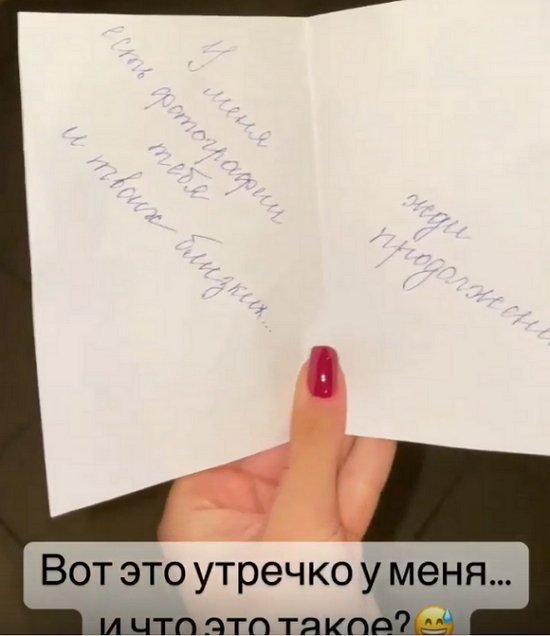 У меня
есть фотографии
тебя
и твоих близких...
жди
продолжени
Вот это утречко у меня...
и что это такое?😅